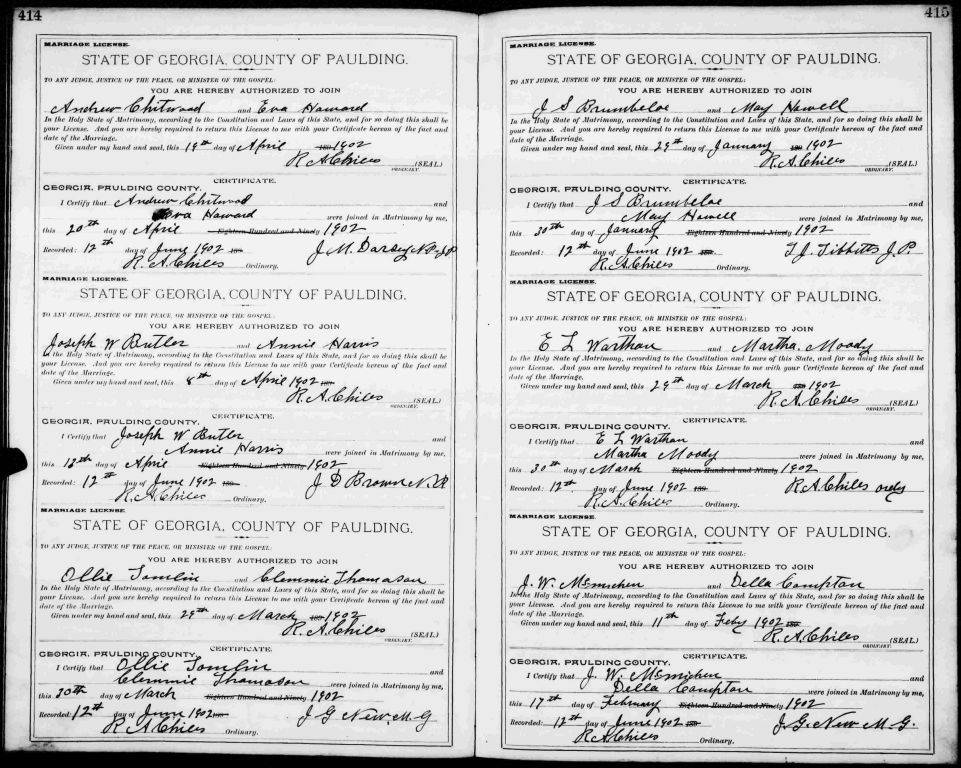 414
MARRIAGE LICENSE.
STATE OF GEORGIA, COUNTY OF PAULDING.
TO ANY JUDGE, JUSTICE OF THE PEACE, OR MINISTER OF THE GOSPEL:
YOU ARE HEREBY AUTHORIZED TO JOIN
Andrew Chitwood and Eva Howard
In the Holy State of Matrimony, according to the Constitution and Laws of this State, and for so doing this shall be
your License. And you are hereby required to return this License to me with your Certificate hereon of the fact and
date of the Marriage.
Given under my hand and seal, this 19th day of April 189 1902
R. A. Chiles (SEAL.)
ORDINARY.
CERTIFICATE.
GEORGIA, PAULDING COUNTY.
I Certify that Andrew Chitwood and
Eva Howard were joined in Matrimony by me,
this 20th day of April Eighteen Hundred and Ninety 1902
Recorded: 12th day of June 1902 189 J. M. Darsey N.P. & J.P.
R. A. Chiles Ordinary.
MARRIAGE LICENSE.
STATE OF GEORGIA, COUNTY OF PAULDING.
TO ANY JUDGE, JUSTICE OF THE PEACE, OR MINISTER OF THE GOSPEL:
YOU ARE HEREBY AUTHORIZED TO JOIN
Joseph W Butler and Annie Harris
In the Holy State of Matrimony, according to the Constitution and Laws of this State, and for so doing this shall be
your License. And you are hereby required to return this License to me with your Certificate hereon of the fact and
date of the Marriage.
Given under my hand and seal, this 8th day of April 1902 189
R. A. Chiles (SEAL.)
ORDINARY.
CERTIFICATE.
GEORGIA, PAULDING COUNTY.
I Certify that Joseph W Butler and
Annie Harris were joined in Matrimony by me,
this 13th day of April Eighteen Hundred and Ninety 1902
Recorded: 12th day of June 1902 189 J D Brown N.P.
R. A. Chiles Ordinary.
MARRIAGE LICENSE.
STATE OF GEORGIA, COUNTY OF PAULDING.
TO ANY JUDGE, JUSTICE OF THE PEACE, OR MINISTER OF THE GOSPEL:
YOU ARE HEREBY AUTHORIZED TO JOIN
Ollie Tomlin and Clemmie Thomason
In the Holy State of Matrimony, according to the Constitution and Laws of this State, and for so doing this shall be
your License. And you are hereby required to return this License to me with your Certificate hereon of the fact and
date of the Marriage.
Given under my hand and seal, this 29th day of March 189 1902
R. A. Chiles (SEAL.)
ORDINARY.
CERTIFICATE.
GEORGIA, PAULDING COUNTY.
I Certify that Ollie Tomlin and
Clemmie Thomason were joined in Matrimony by me,
this 30th day of March Eighteen Hundred and Ninety 1902
Recorded: 12th day of June 1902 189 J G New M G
R. A. Chiles Ordinary.
415
MARRIAGE LICENSE.
STATE OF GEORGIA, COUNTY OF PAULDING.
TO ANY JUDGE, JUSTICE OF THE PEACE, OR MINISTER OF THE GOSPEL:
YOU ARE HEREBY AUTHORIZED TO JOIN
J S Brumbeloe and May Howell
In the Holy State of Matrimony, according to the Constitution and Laws of this State, and for so doing this shall be
your License. And you are hereby required to return this License to me with your Certificate hereon of the fact and
date of the Marriage.
Given under my hand and seal, this 29th day of January 189 1902
R. A. Chiles (SEAL.)
ORDINARY.
CERTIFICATE.
GEORGIA, PAULDING COUNTY.
I Certify that J S Brumbeloe and
May Howell were joined in Matrimony by me,
this 30th day of January Eighteen Hundred and Ninety 1902
Recorded: 12th day of June 1902 189 T. J. Tibbitts J. P.
R. A. Chiles Ordinary.
MARRIAGE LICENSE.
STATE OF GEORGIA, COUNTY OF PAULDING.
TO ANY JUDGE, JUSTICE OF THE PEACE, OR MINISTER OF THE GOSPEL:
YOU ARE HEREBY AUTHORIZED TO JOIN
E L Warthan and Martha Moody
In the Holy State of Matrimony, according to the Constitution and Laws of this State, and for so doing this shall be
your License. And you are hereby required to return this License to me with your Certificate hereon of the fact and
date of the Marriage.
Given under my hand and seal, this 29th day of March 189 1902
R. A. Chiles (SEAL.)
ORDINARY.
CERTIFICATE.
GEORGIA, PAULDING COUNTY.
I Certify that E L Warthan and
Martha Moody were joined in Matrimony by me,
this 30th day of March Eighteen Hundred and Ninety 1902
Recorded: 12th day of June 1902 189 R. A. Chiles ordy
R. A. Chiles Ordinary.
MARRIAGE LICENSE.
STATE OF GEORGIA, COUNTY OF PAULDING.
TO ANY JUDGE, JUSTICE OF THE PEACE, OR MINISTER OF THE GOSPEL:
YOU ARE HEREBY AUTHORIZED TO JOIN
J. W. Mcmichen and Della Compton
In the Holy State of Matrimony, according to the Constitution and Laws of this State, and for so doing this shall be
your License. And you are hereby required to return this License to me with your Certificate hereon of the fact and
date of the Marriage.
Given under my hand and seal, this 11th day of Feby 1902 189
R. A. Chiles (SEAL.)
ORDINARY.
CERTIFICATE.
GEORGIA, PAULDING COUNTY.
I Certify that J. W. Mcmichen and
Della Compton were joined in Matrimony by me,
this 17th day of February Eighteen Hundred and Ninety 1902
Recorded: 12th day of June 1902 189 J. G. New M. G.
R. A. Chiles Ordinary.